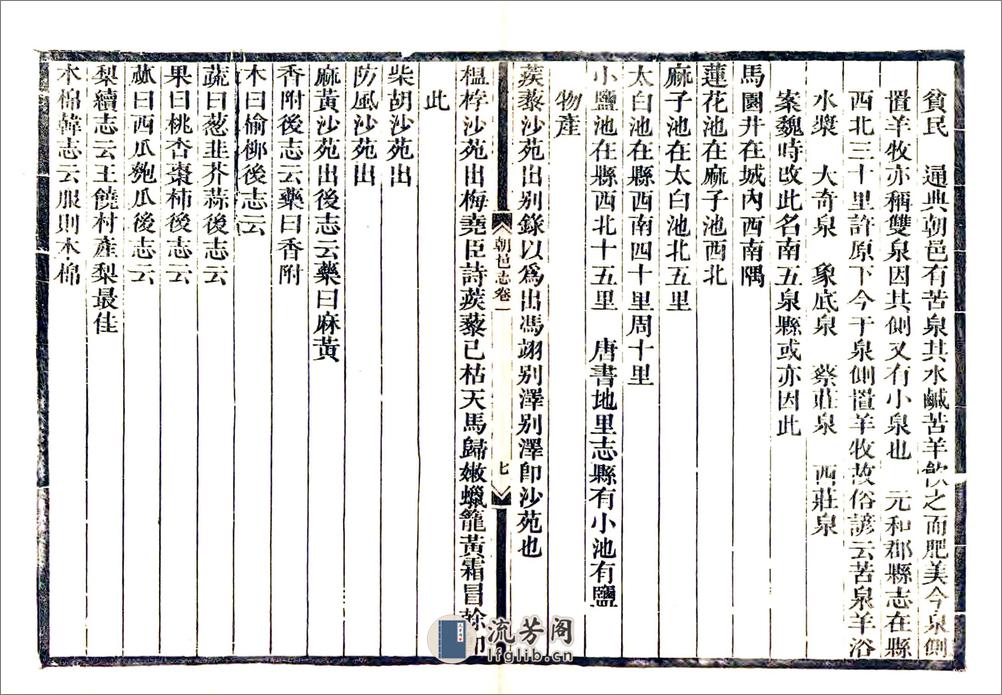 貧民　通典朝邑有苦泉其水鹹苦羊飲之而肥美今泉側
置羊牧亦稱雙泉因其側又有小泉也　元和郡縣志在縣
西北三十里許原下今于泉側置羊牧故俗諺云苦泉羊洛
水漿　大奇泉　象底泉　蔡莊泉　西莊泉
案魏時改此名南五泉縣或亦因此
馬園井在城內西南隅
蓮花池在麻子池西北
麻子池在太白池北五里
太白池在縣西南四十里周十里
小鹽池在縣西北十五里　唐書地里志縣有小池有鹽
物產
蒺藜沙苑出别錄以爲出馮翊别澤别澤卽沙苑也
朝邑志卷一
七
榅桲沙苑出梅堯臣詩蒺藜已枯天馬歸嫩蠟籠黃霜冒幹卽
此
柴胡沙苑出
防風沙苑出
麻黃沙苑出後志云藥曰麻黃
香附後志云藥曰香附
木曰偷柳後志云
蔬曰葱韭芥蒜後志云
果曰桃杏棗柿後志云
蓏曰西瓜匏瓜後志云
梨續志云王饒村產梨最佳
木棉韓志云服則木棉
流芳阁
lfglib.cn